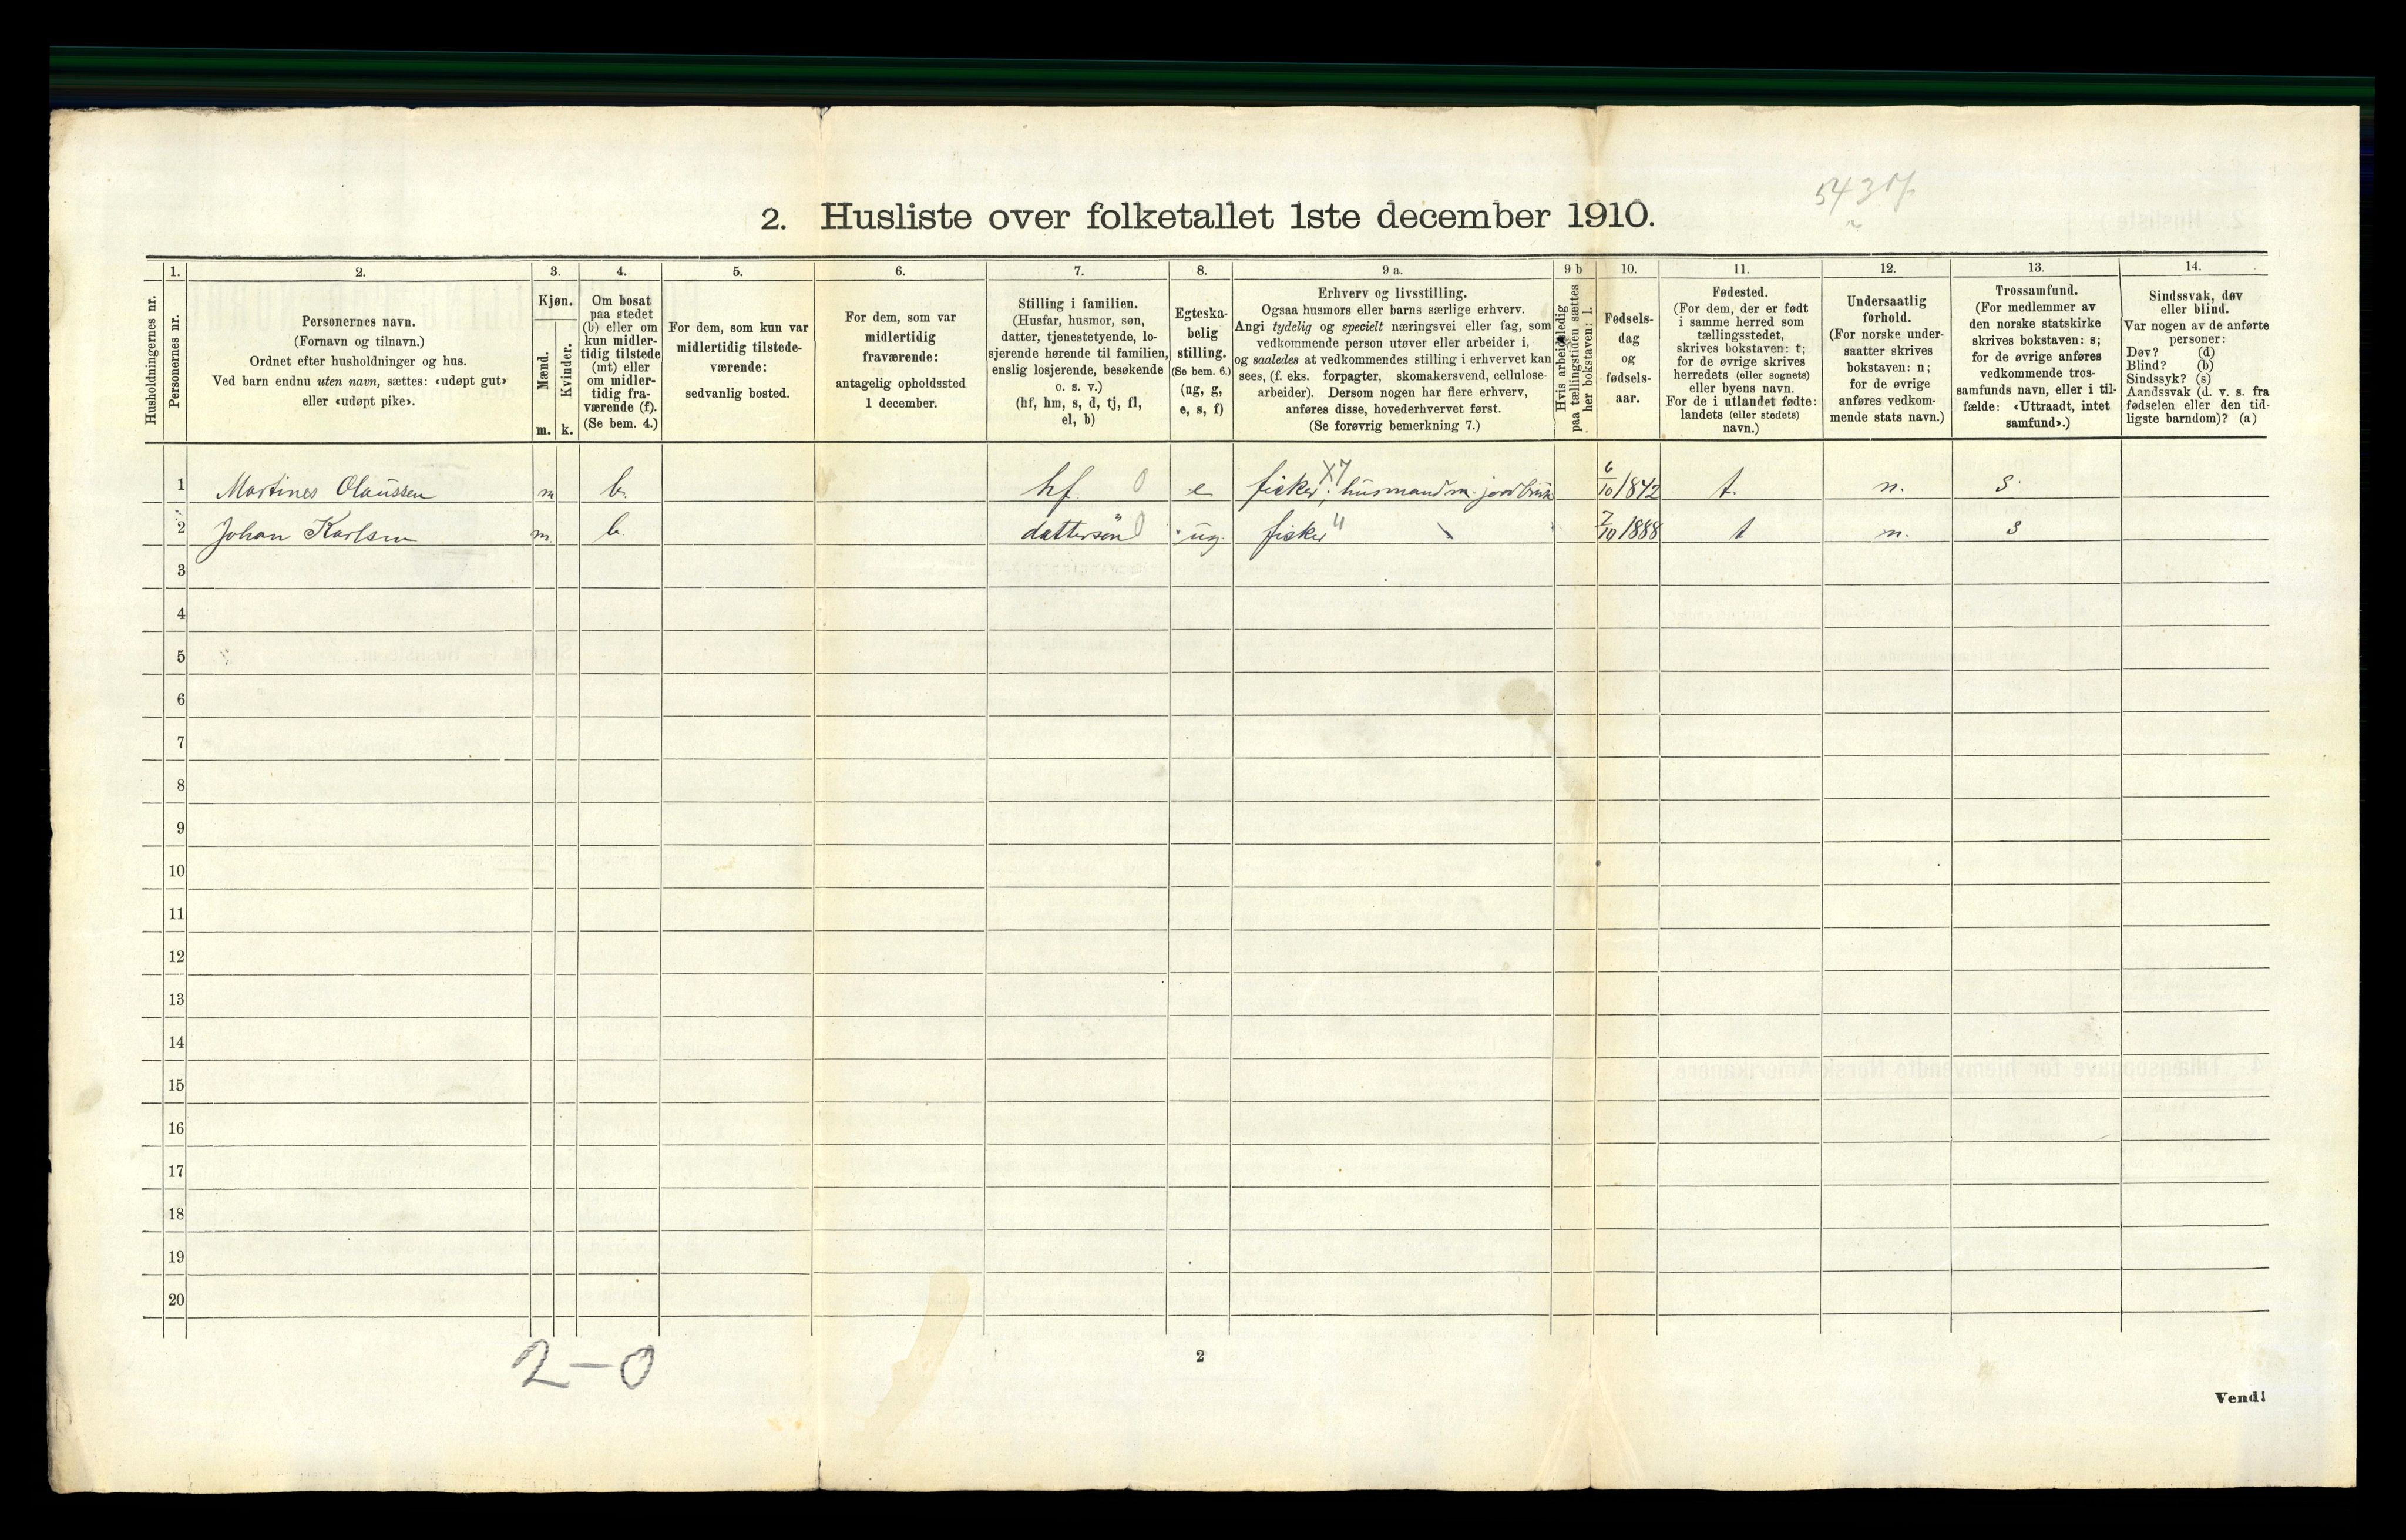 2. Husliste over folketallet 1ste december 1910.
Husholdningernes nr.
1.
Personernes nr.
2.
Personernes navn.
(Fornavn og tilnavn.)
Ordnet efter husholdninger og hus.
Ved barn endnu uten navn, sættes: «udøpt gut»
eller «udøpt pike».
3.
Kjøn.
Mænd.
Kvinder.
m. k.
4.
Om bosat
paa stedet
(b) eller om
kun midler-
tidig tilstede
(mt) eller
om midler-
tidig fra-
værende (f).
(Se bem. 4.)
5.
For dem, som kun var
midlertidig tilstede-
værende:
sedvanlig bosted.
6.
For dem, som var
midlertidig
fraværende:
antagelig opholdssted
1 december.
7.
Stilling i familien.
(Husfar, husmor, søn,
datter, tjenestetyende, lo-
sjerende hørende til familien,
enslig losjerende, besøkende
o. s. v.)
(hf, hm, s, d, tj, fl,
el, b)
8.
Egteska-
belig
stilling.
(Se bem. 6.)
(ug, g,
e, s, f)
9 a.
Erhverv og livsstilling.
Ogsaa husmors eller barns særlige erhverv.
Angi tydelig og specielt næringsvei eller fag, som
vedkommende person utøver eller arbeider i,
og saaledes at vedkommendes stilling i erhvervet kan
sees, (f. eks. forpagter, skomakersvend, cellulose-
arbeider). Dersom nogen har flere erhverv,
anføres disse, hovederhvervet først.
(Se forøvrig bemerkning 7.)
9 b
Hvis arbeidsledig
paa tællingstiden sættes
her bokstaven: l.
10.
Fødsels-
dag
og
fødsels-
aar.
11.
Fødested.
(For dem, der er født
i samme herred som
tællingsstedet,
skrives bokstaven: t;
for de øvrige skrives
herredets (eller sognets)
eller byens navn.
For de i utlandet fødte:
landets (eller stedets)
navn.)
12.
Undersaatlig
forhold.
(For norske under-
saatter skrives
bokstaven: n;
for de øvrige
anføres vedkom-
mende stats navn.)
13.
Trossamfund.
(For medlemmer av
den norske statskirke
skrives bokstaven: s;
for de øvrige anføres
vedkommende tros-
samfunds navn, eller i til-
fælde: «Uttraadt, intet
samfund».)
14.
Sindssvak, døv
eller blind.
Var nogen av de anførte
personer:
Døv? (d)
Blind? (b)
Sindssyk? (s)
Aandssvak (d. v. s. fra
fødselen eller den tid-
ligste barndom)? (a)
1 Martines Olaussen m b. hf 0 e fisker; X7 husmand m. jordbruk 6/10 1842 t. n. s.
2 Johan Karlsen m. b. dattersøn 0 ug. fisker " 7/10 1888 t n. s
3
4
5
6
7
8
9
10
11
12
13
14
15
16
17
18
19
20
2 - 0
2
Vend!